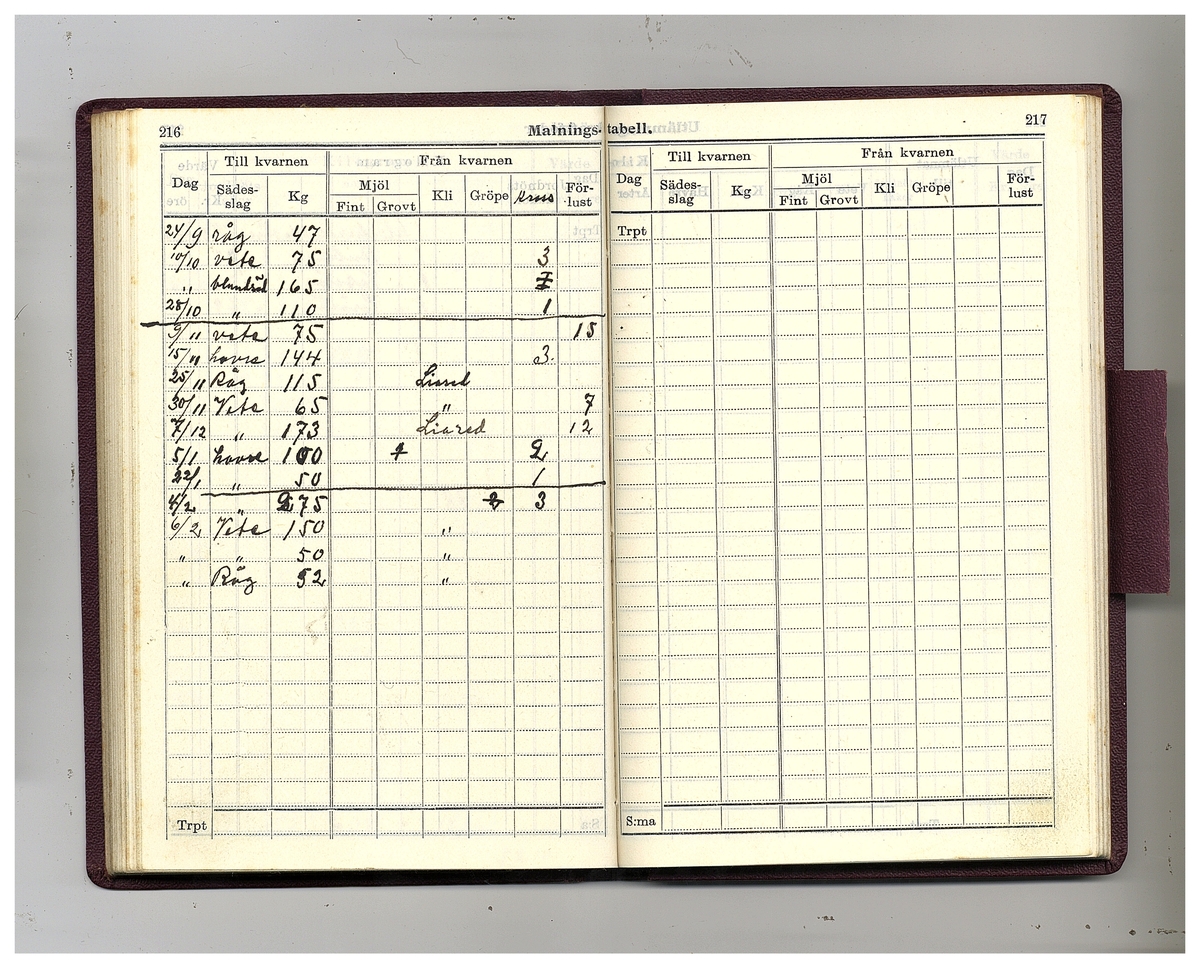 216
Malnings-tabell.
217
Till kvarnen Från kvarnen
Dag Sädes-slag Kg Mjöl Fint Grovt Kli Gröpe Kross För-lust
24/9 råg 47
10/10 vete 75 3
" blandsäd 165
28/10 " 110 1
9/11 vete 75 15
15/11 havre 144 3
25/11 Råg 115 Liared
30/11 Vete 65 " 7
7/12 " 173 Liared 12
5/1 havre 100 2
22/1 " 50 1
4/2 " 275 3
6/2 Vete 150 "
" " 50 "
" Råg 52 "
Trpt
Till kvarnen Från kvarnen
Dag Sädes-slag Kg Mjöl Fint Grovt Kli Gröpe För-lust
Trpt
S:ma